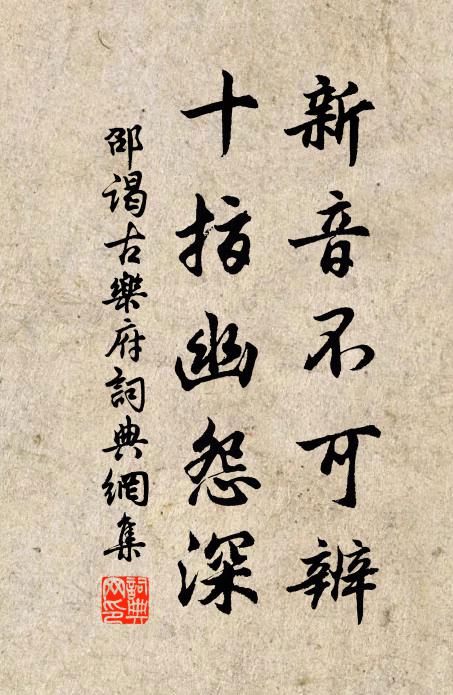 新音不可辨
十指幽怨深
邵謁古樂府詞典網集
詞典